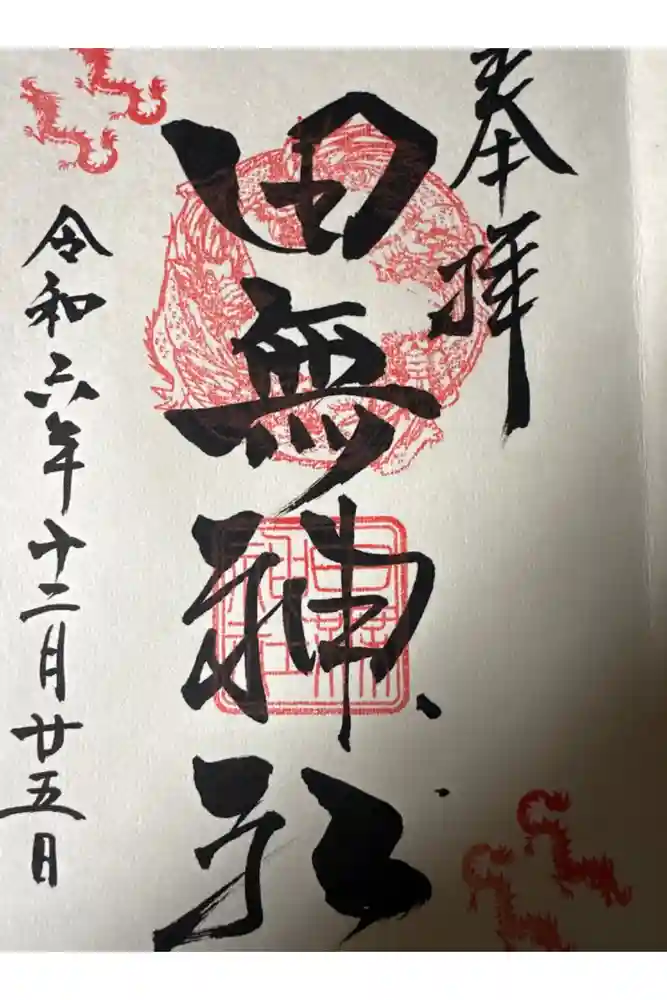 奉拝
田無神社
令和六年十二月廿五日
田無神社